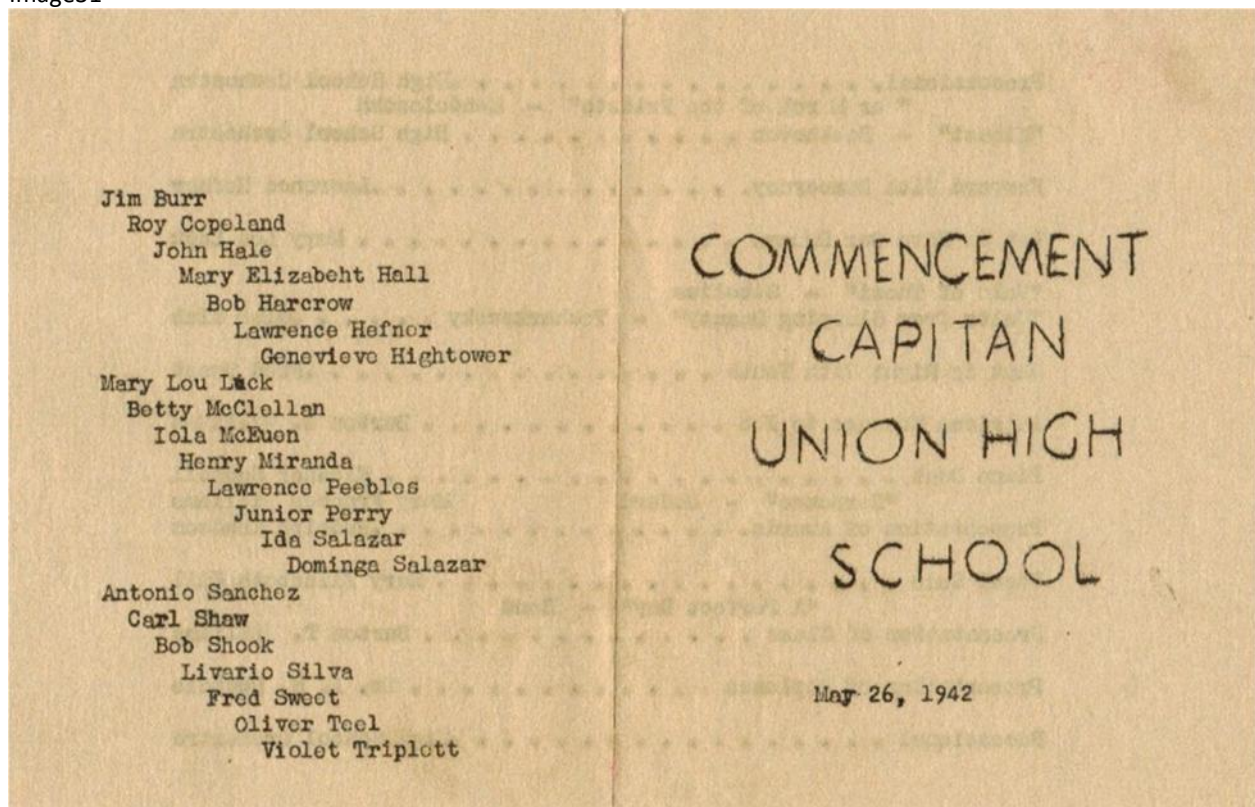 Jim Burr
Roy Copeland
John Hale
Mary Elizabeht Hall
Bob Harcrow
Lawrence Hefner
Genevieve Hightower
Mary Lou
Betty McClellan
Iola McEuen
Henry Miranda
Lawrence Peebles
Junior Perry
Ida Salazar
Dominga Salazar
Antonio Sanchez
Carl Shaw
Bob Shook
Livario Silva
Fred Sweet
Oliver Teel
Violet Triplett
COMMENCEMENT
CAPITAN
UNION HIGH
SCHOOL
May 26, 1942